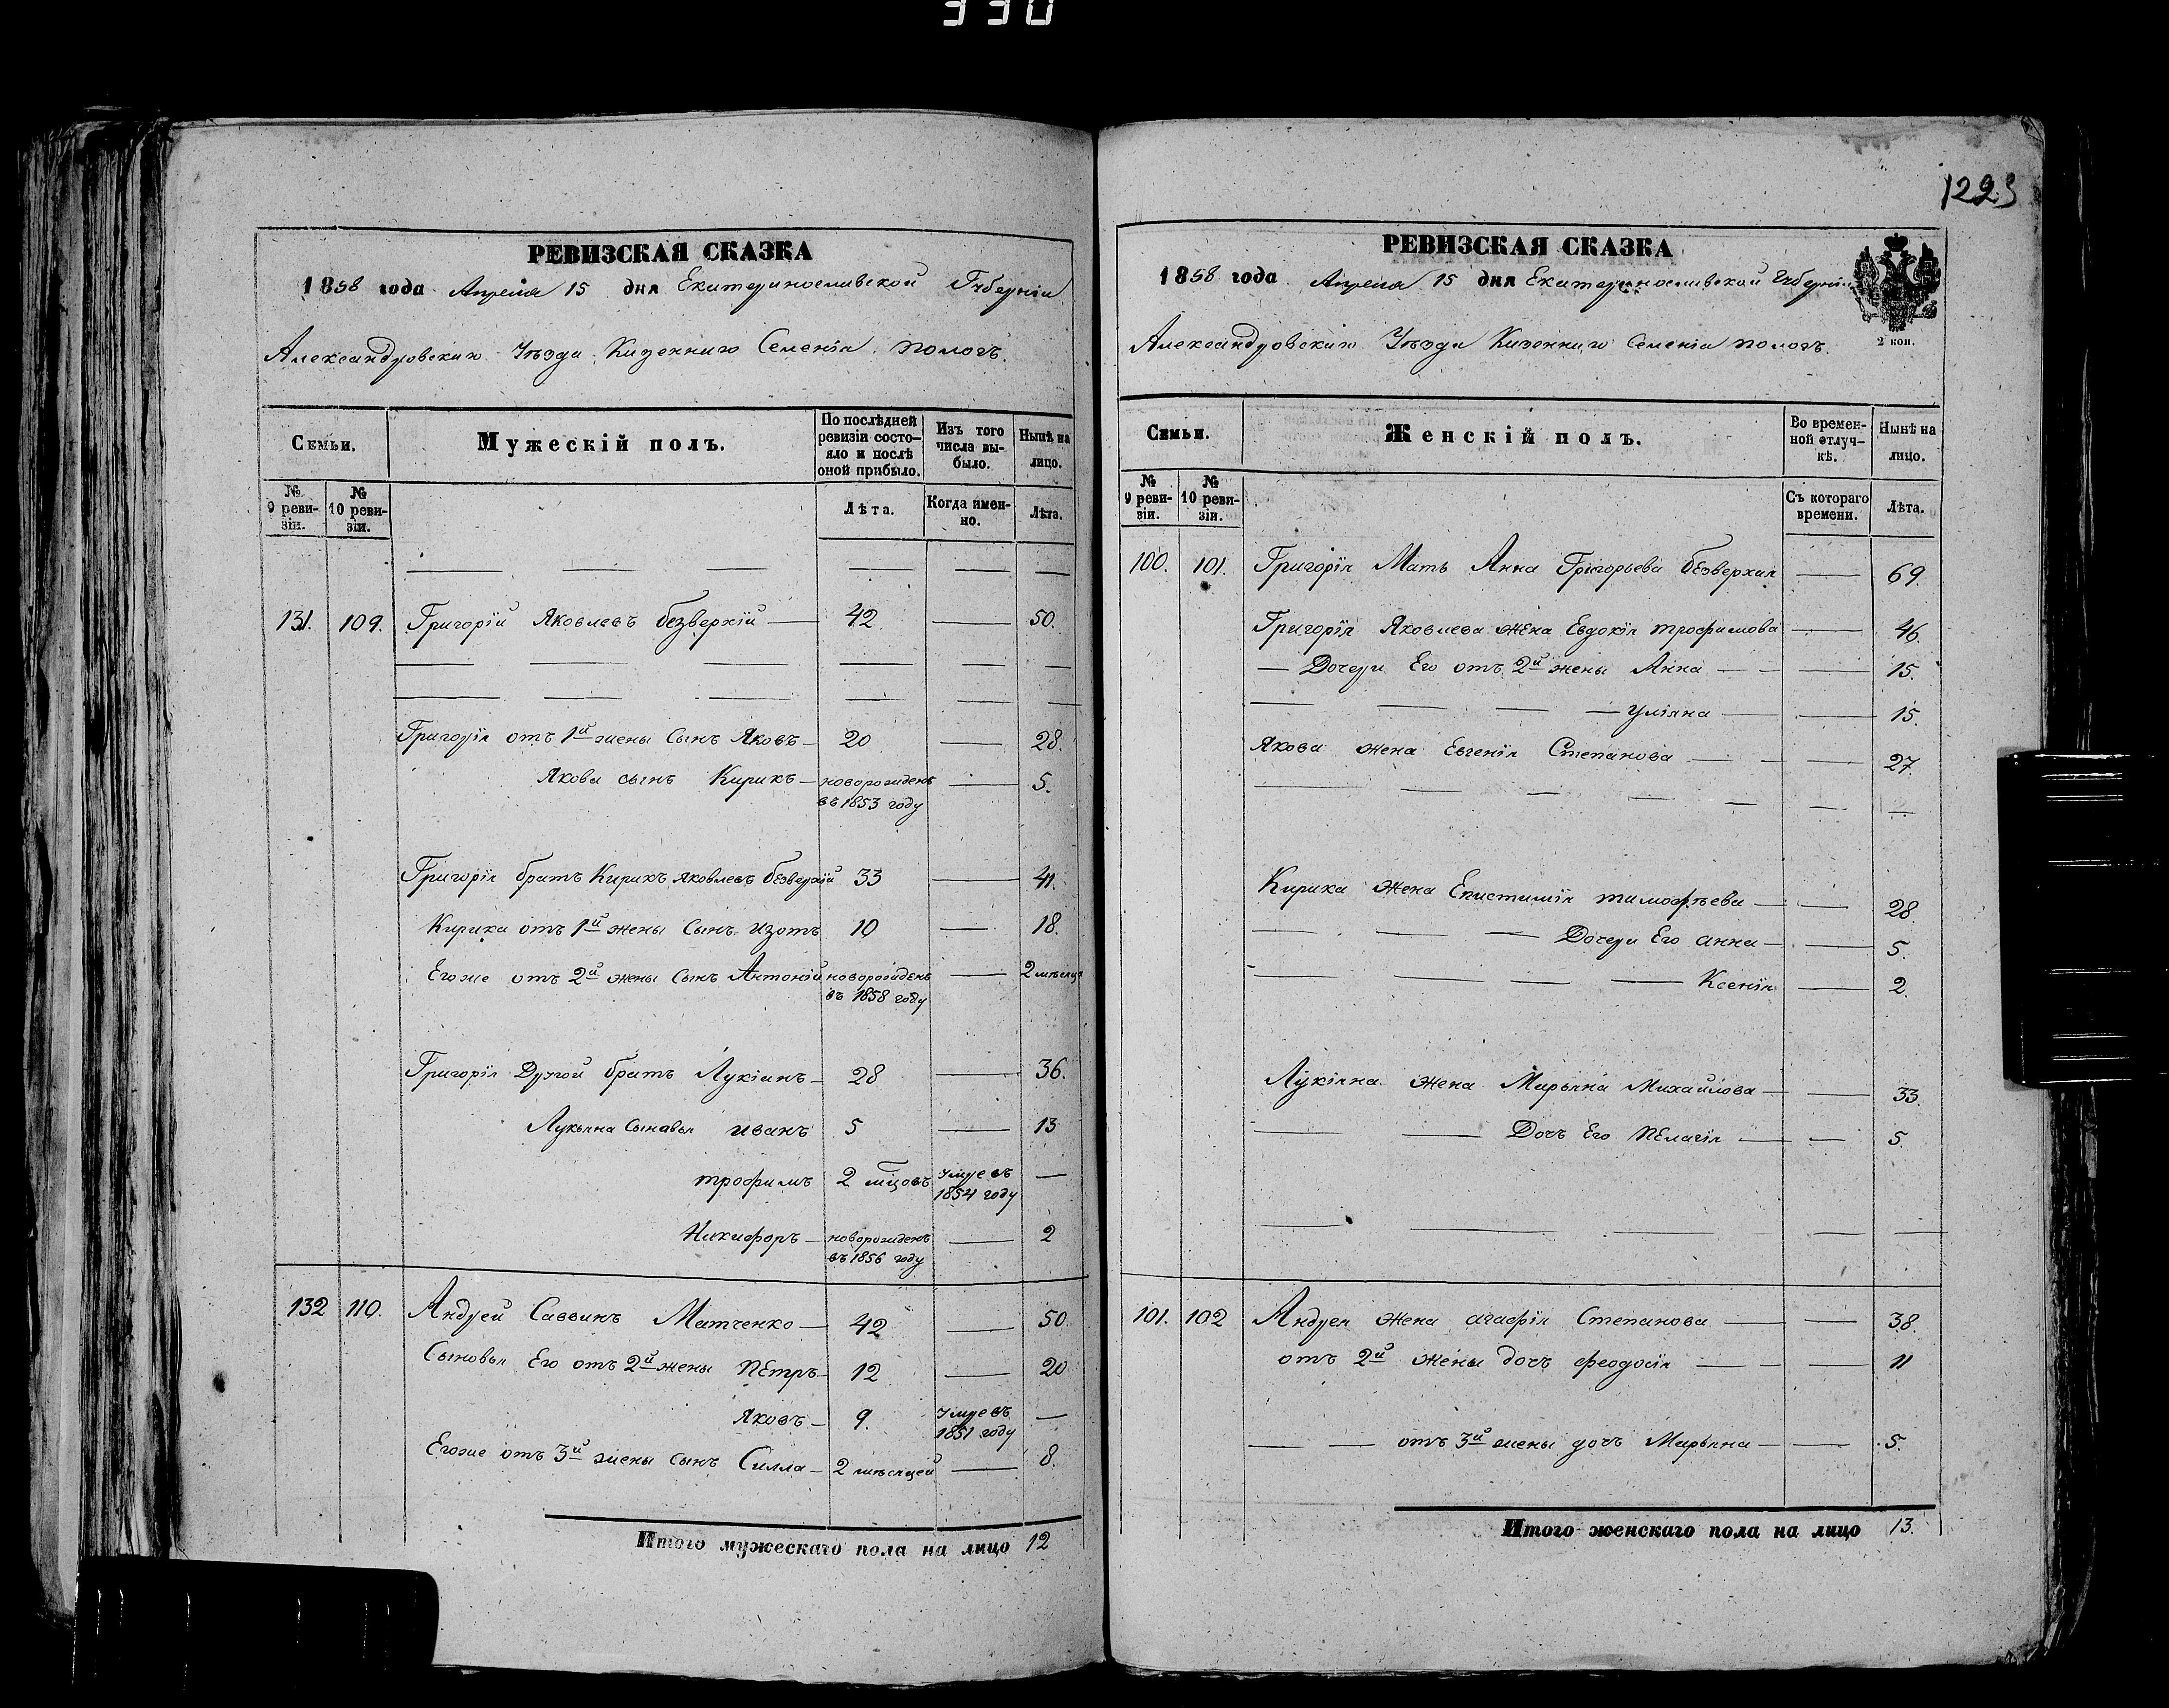 330
РЕВИЗСКАЯ СКАЗКА
1858 года Апреля 15 дня Екатеринославской Губерніи
Александровскаго Уѣзда Казеннаго Селенія Пологъ.
Семьи.
Мужескій полъ.
По послѣдней ревизіи состо-
яло и послѣ оной прибыло.
Изъ того числа вы-
было.
Нынѣ на лицо.
№ 9 реви-
зіи.
№ 10 реви-
зіи.
Лѣта.
Когда имен-
но.
Лѣта.
131. 109. Григорій Яковлевъ безверхій — 42 — 50.
Григорія отъ 1й жены Сынъ Яковъ — 20 — 28.
Якова сынъ Кирикъ — новорожденъ — 5.
въ 1853 году
Григорія братъ Кирикъ Яковлевъ безверхій 33 — 41.
Кирика отъ 1й жены Сынъ Изотъ 10 — 18.
Егоже отъ 2й жены Сынъ Антоній новорожденъ — 2 мѣсяца
въ 1858 году
Григорія Другой братъ Лукіанъ — 28 — 36.
Лукьяна Сыновья иванъ 5 — 13
трофимъ 2 мцовъ умре въ —
1854 году
Никифоръ — новорожденъ — 2
въ 1856 году
132 110. Андрей Саввинъ Матченко — 42 — 50.
Сыновья Его отъ 2й жены Петръ — 12 — 20
Яковъ — 9. умре въ —
1851 году
Егоже отъ 3й жены сынъ Силла — 2 мѣсяцей — 8.
Итого мужескаго пола на лицо 12
1223
РЕВИЗСКАЯ СКАЗКА
1858 года Апреля 15 дня Екатеринославской Губерніи
Александровскаго Уѣзда Казеннаго Селенія пологъ.
2 коп.
Семьи.
Женскій полъ.
Во времен-
ной отлуч-
кѣ.
Нынѣ на лицо.
№ 9 реви-
зіи.
№ 10 реви-
зіи.
Съ котораго времени.
Лѣта.
100. 101. Григорія Мать Анна Григорьева безверхая — 69.
Григорія Яковлева жена Евдокія трофимова — 46.
— Дочери Его отъ 2й жены Анна — — 15.
— Уліяна — — 15.
Якова жена Евгенія Степанова — — 27.
Кирика жена Епистимія тимофѣева — — 28.
Дочери Его анна — — 5.
Ксенія — 2.
Лукіяна жена Марьяна Михайлова — — 33.
Дочь Его Пелагія — — 5.
101. 102 Андрея жена агафія Степанова — — 38.
отъ 2й жены дочь феодосія — — 11
— — отъ 3й жены дочь Марьяна — — 5.
Итого женскаго пола на лицо 13.